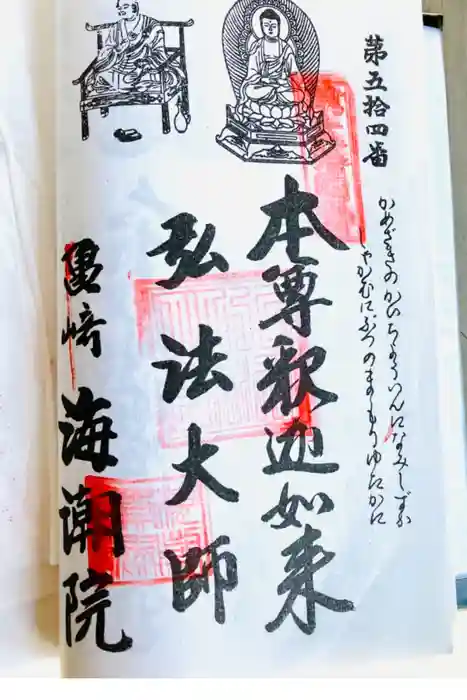 第五拾四番
かめざきのかいちよういんになみしずか
しやかむにぶつのまもりゆたかに
本尊釈迦如来
弘法大師
亀崎 海潮院